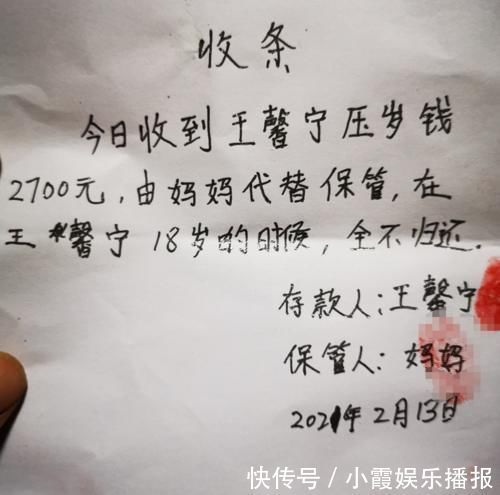 收条
今日收到王馨宁压岁钱
2700元,由妈妈代替保管,在
王馨宁18岁的时候,全不归还.
存款人:王馨宁
保管人:妈妈
2021年2月13日
快传号/小霞娱乐播报